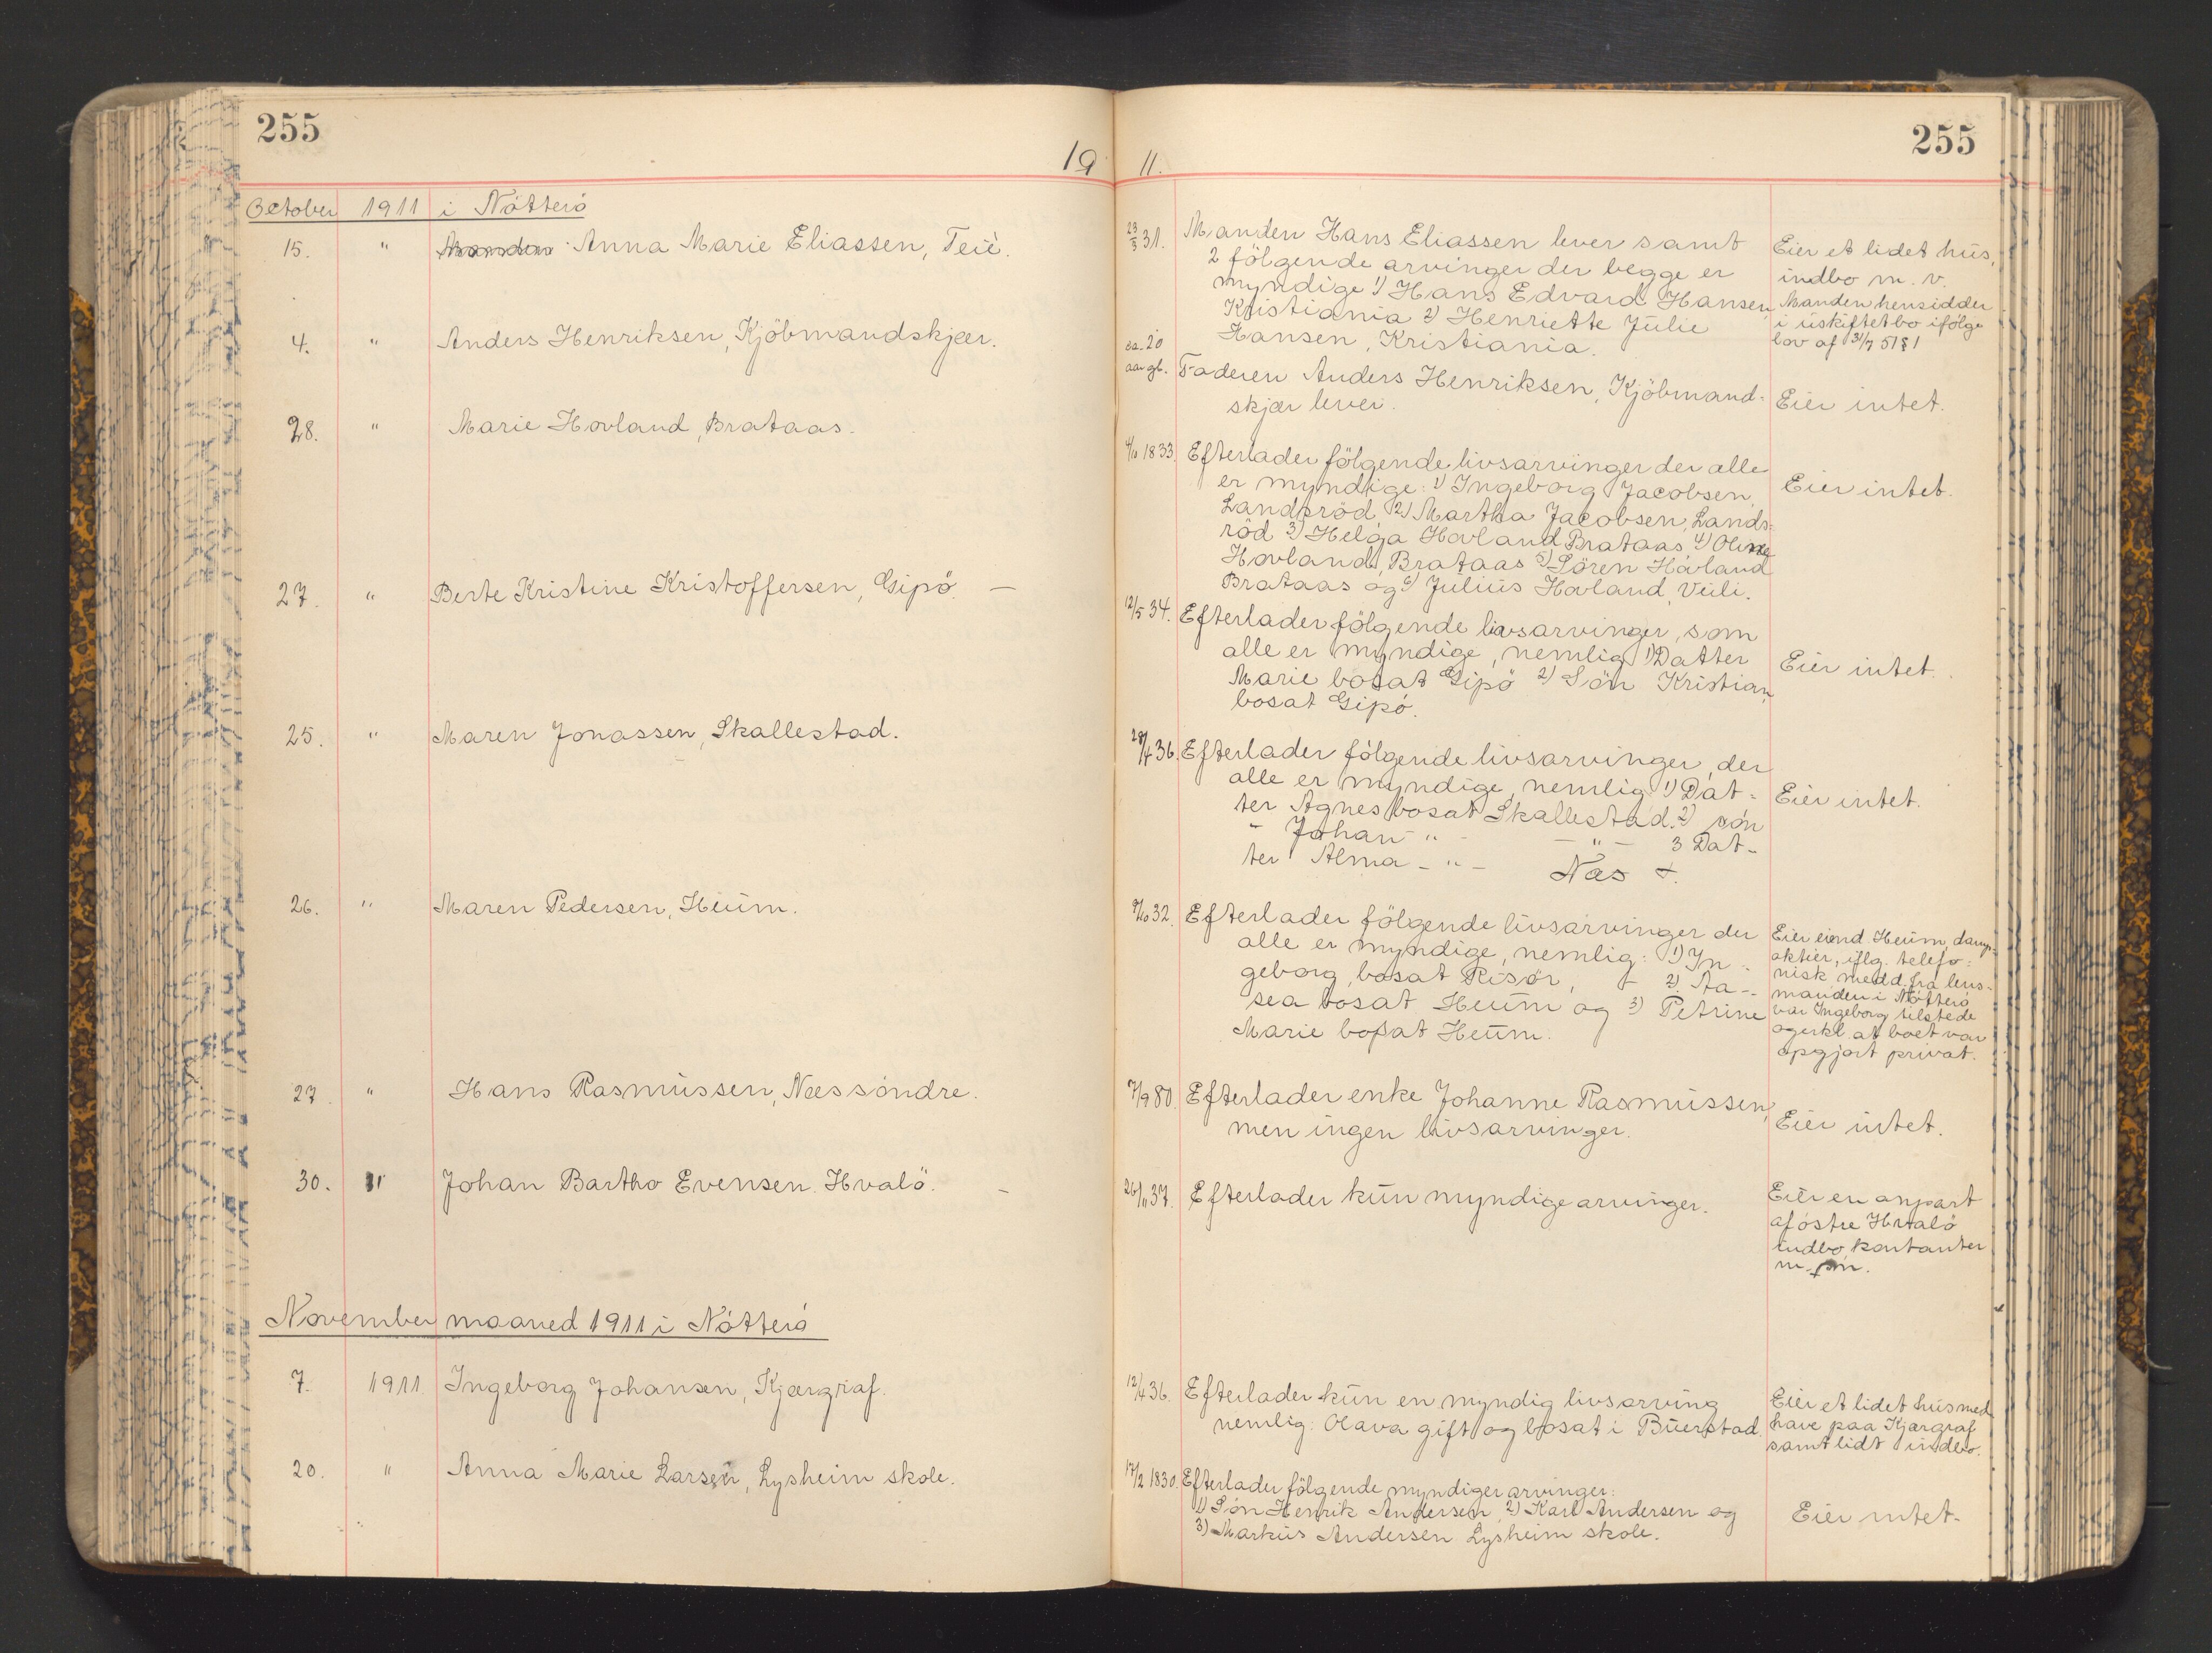 255
255
19 11.
October 1911 i Nötterö
15. " Manden Anna Marie Eliassen, Teie.
23/3 31. Manden Hans Eliassen lever samt
2 fölgende arvinger der begge er
myndige 1) Hans Edvard Hansen,
Kristiania 2) Henriette Julie
Hansen, Kristiania.
Eier et lidet hus,
indbo m. v.
Manden hensidder
i uskiftet bo ifölge
lov af 31/7 51 § 1
4. " Anders Henriksen, Kjöbmandskjær.
ca. 20
aar gl. Faderen Anders Henriksen, Kjöbmand-
skjær lever.
Eier intet.
28. " Marie Hovland, Brataas.
4/10 1833. Efterlader fölgende livsarvinger der alle
er myndige: 1) Ingeborg Jacobsen,
Landsröd, 2) Martha Jacobsen, Lands-
röd 3) Helga Hovland Brataas, 4) Oline
Hovland, Brataas 5) Sören Hovland
Brataas og 6) Julius Hovland, Vüli.
Eier intet.
27. " Berte Kristine Kristoffersen, Gipö. —
12/5 34. Efterlader fölgende livsarvinger, som
alle er myndige, nemlig 1) Datter
Marie bosat Gipö 2) Sön Kristian,
bosat Gipö.
Eier intet.
25. " Maren Jonassen, Skallestad.
28/4 36. Efterlader fölgende livsarvinger, der
alle er myndige, nemlig 1) Dat-
ter Agnes bosat Skallestad. 2) sön
- Johan - " - - " - 3 Dat-
ter Alma - " - Næs +.
Eier intet.
26. " Maren Pedersen, Heum.
9/10 32. Efterlader fölgende livsarvinger der
alle er myndige, nemlig: 1) In-
geborg, bosat Risör, + 2). Aa-
sea bosat Heum og 3) Petrine
Marie bosat Heum.
Eier eiend Heum, damp-
aktier, iflg. telefo-
nisk medd. fra lens-
manden i Nötterö
var Ingeborg tilstede
og erkl. at boet var
opgjort privat.
27. " Hans Rasmussen, Næssöndre.
7/9 80. Efterlader enke Johanne Rasmussen,
men ingen livsarvinger.
Eier intet.
30. " Johan Bartho Evensen. Hvalö. —
26/11 37. Efterlader kun myndige arvinger.
Eier en anpart
af östre Hvalö
indbo, kontanter
m.
November maaned 1911 i Nötterö
7. 1911. Ingeborg Johansen, Kjærgraf.
12/4 36. Efterlader kun en myndig livsarving
nemlig: Olava gift og bosat i Buerstad.
Eier et lidet hus med
have paa Kjærgraf
samt lidt indbo.
20. " Anna Marie Larsen, Lysheim skole.
17/2 1830. Efterlader fölgende myndiger arvinger:
1) Sön Henrik Andersen, 2) Karl Andersen og
3) Markus Andersen Lysheim skole.
Eier intet-